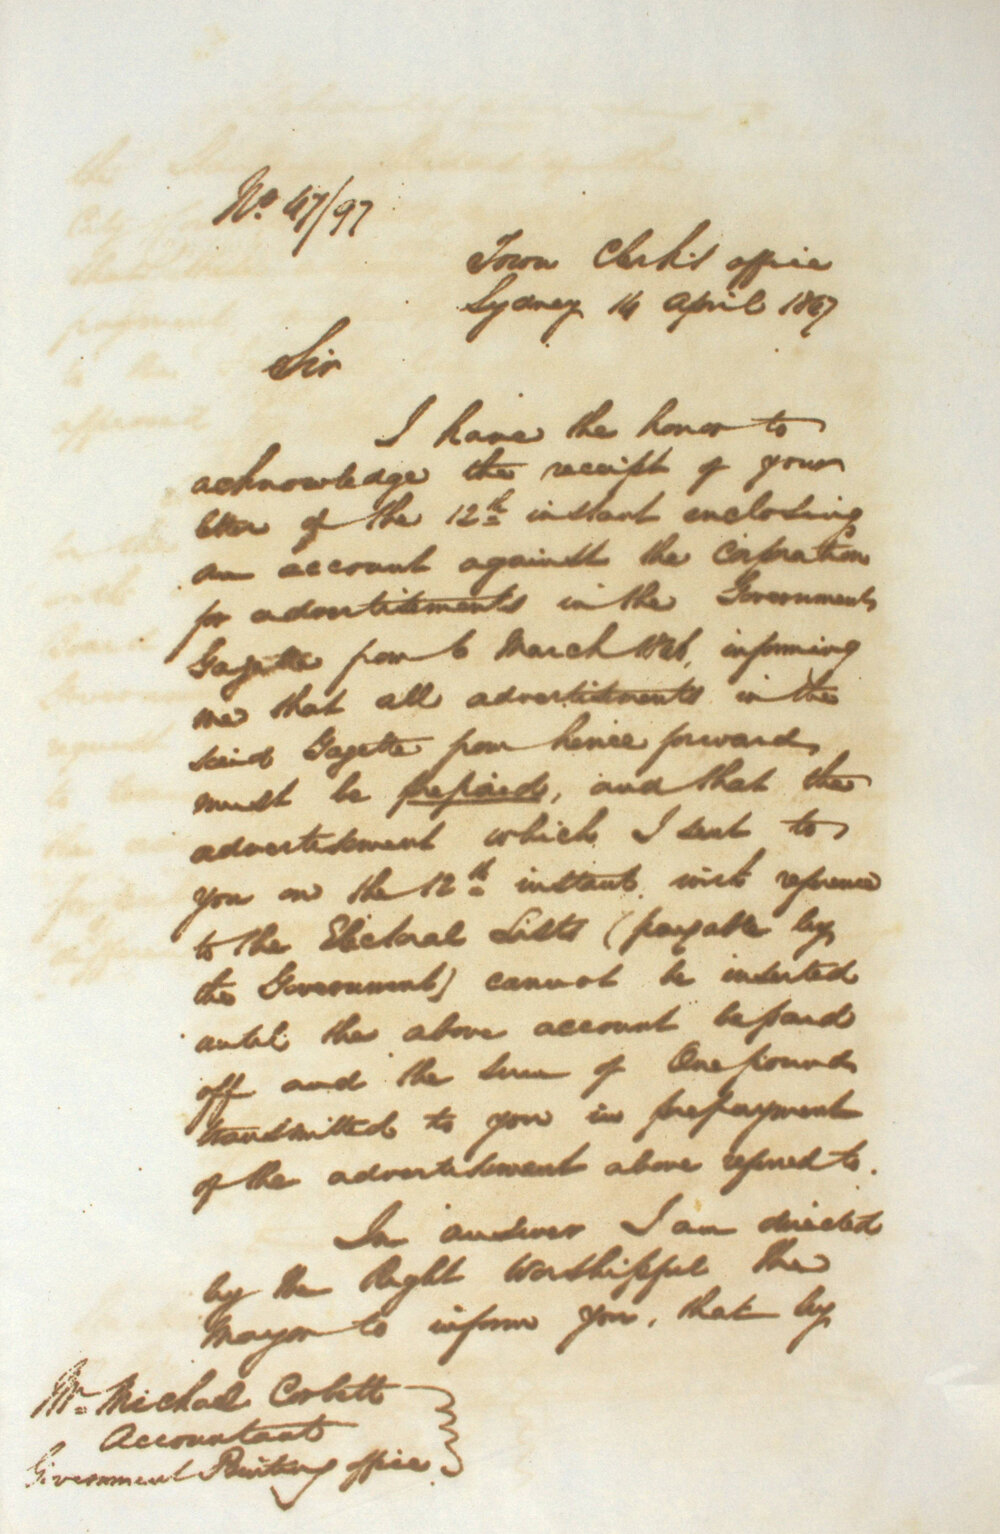 No. 47/97
Town Clerk's office
Sydney 14 April 1867
Sir
I have the honor to
acknowledge the receipt of your
letter of the 12th instant enclosing
an account against the Corporation
for advertisements in the Government
Gazette from to March, informing
me that all advertisements in the
said Gazette from hence forward
must be prepaid, and that the
advertisement which I sent to
you on the 12th instant with reference
to the Electoral Lists (payable by
the Government) cannot be inserted
until the above account be paid
off and the sum of One pound
transmitted to you in prepayment
of the advertisement above referred to.
In answer I am directed
by the Right Worshipful the
Mayor to inform you, that by
Mr. Michael Corbett
Accountant
Government Printing office